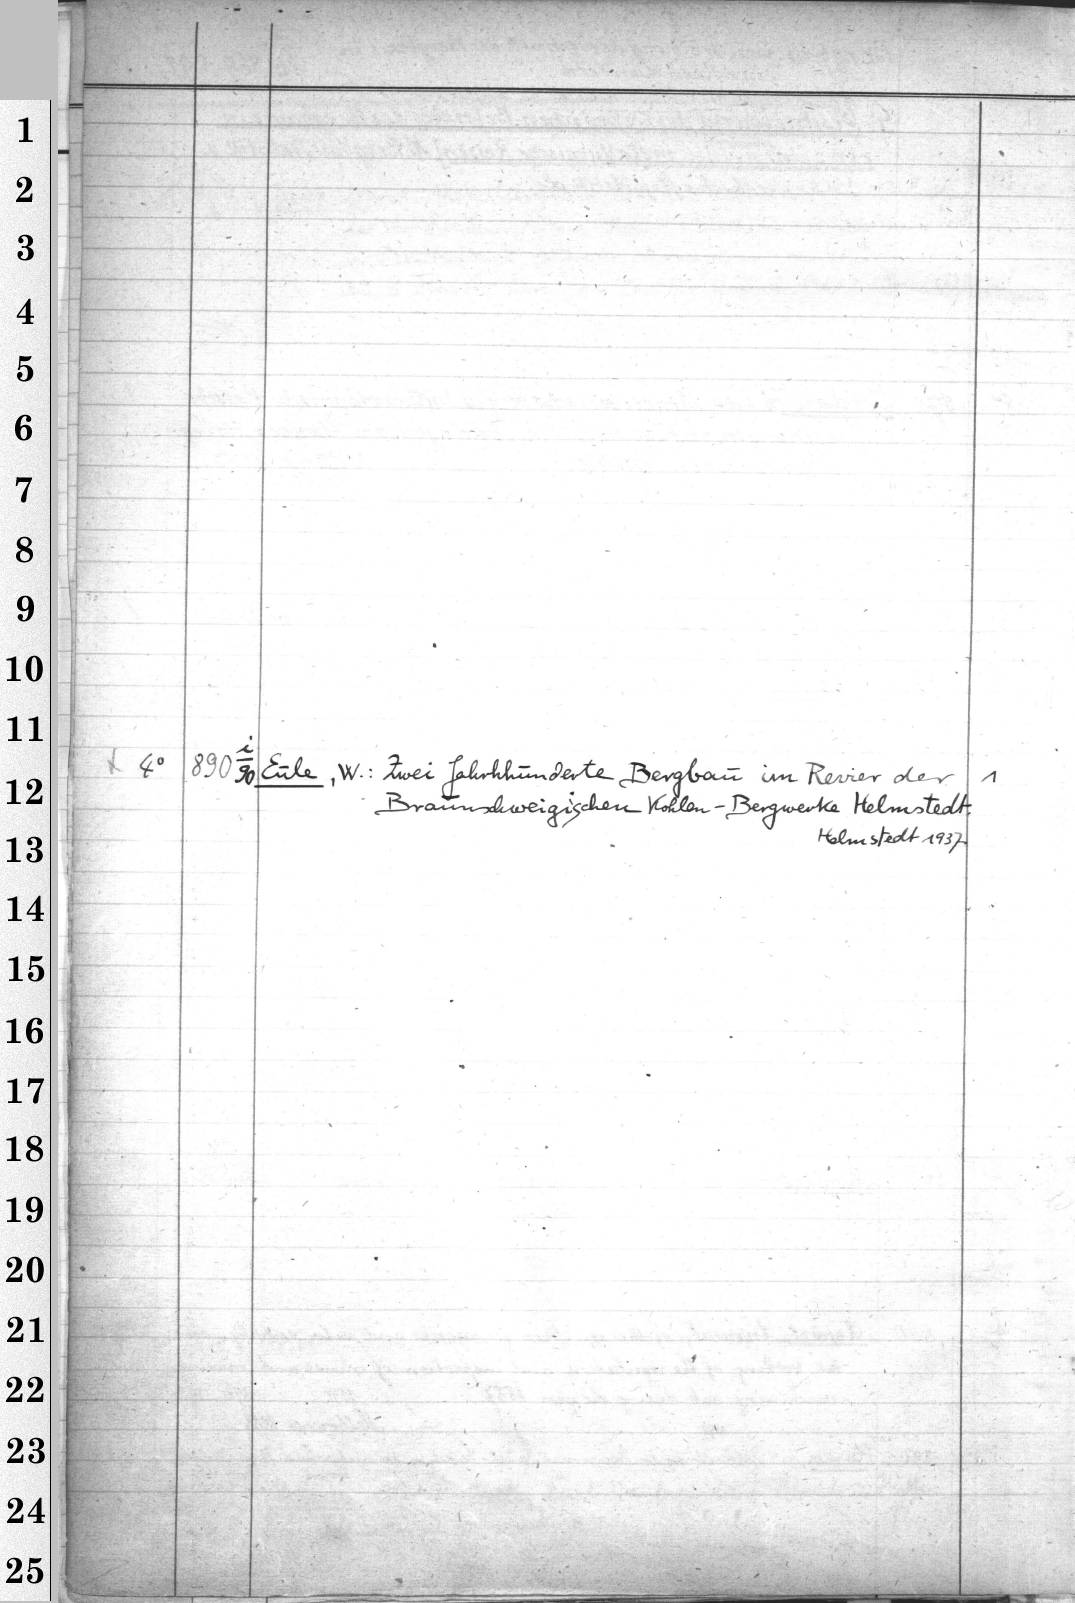 1
2
3
4
5
6
7
8
9
10
11
12
13
14
15
16
17
18
19
20
21
22
23
24
25
4° 890 i/90 Eule, W.: Zwei Jahrhhunderte Bergbau im Revier der 1
Braunschweigischen Kohlen-Bergwerke Helmstedt.
Helmstedt 1937